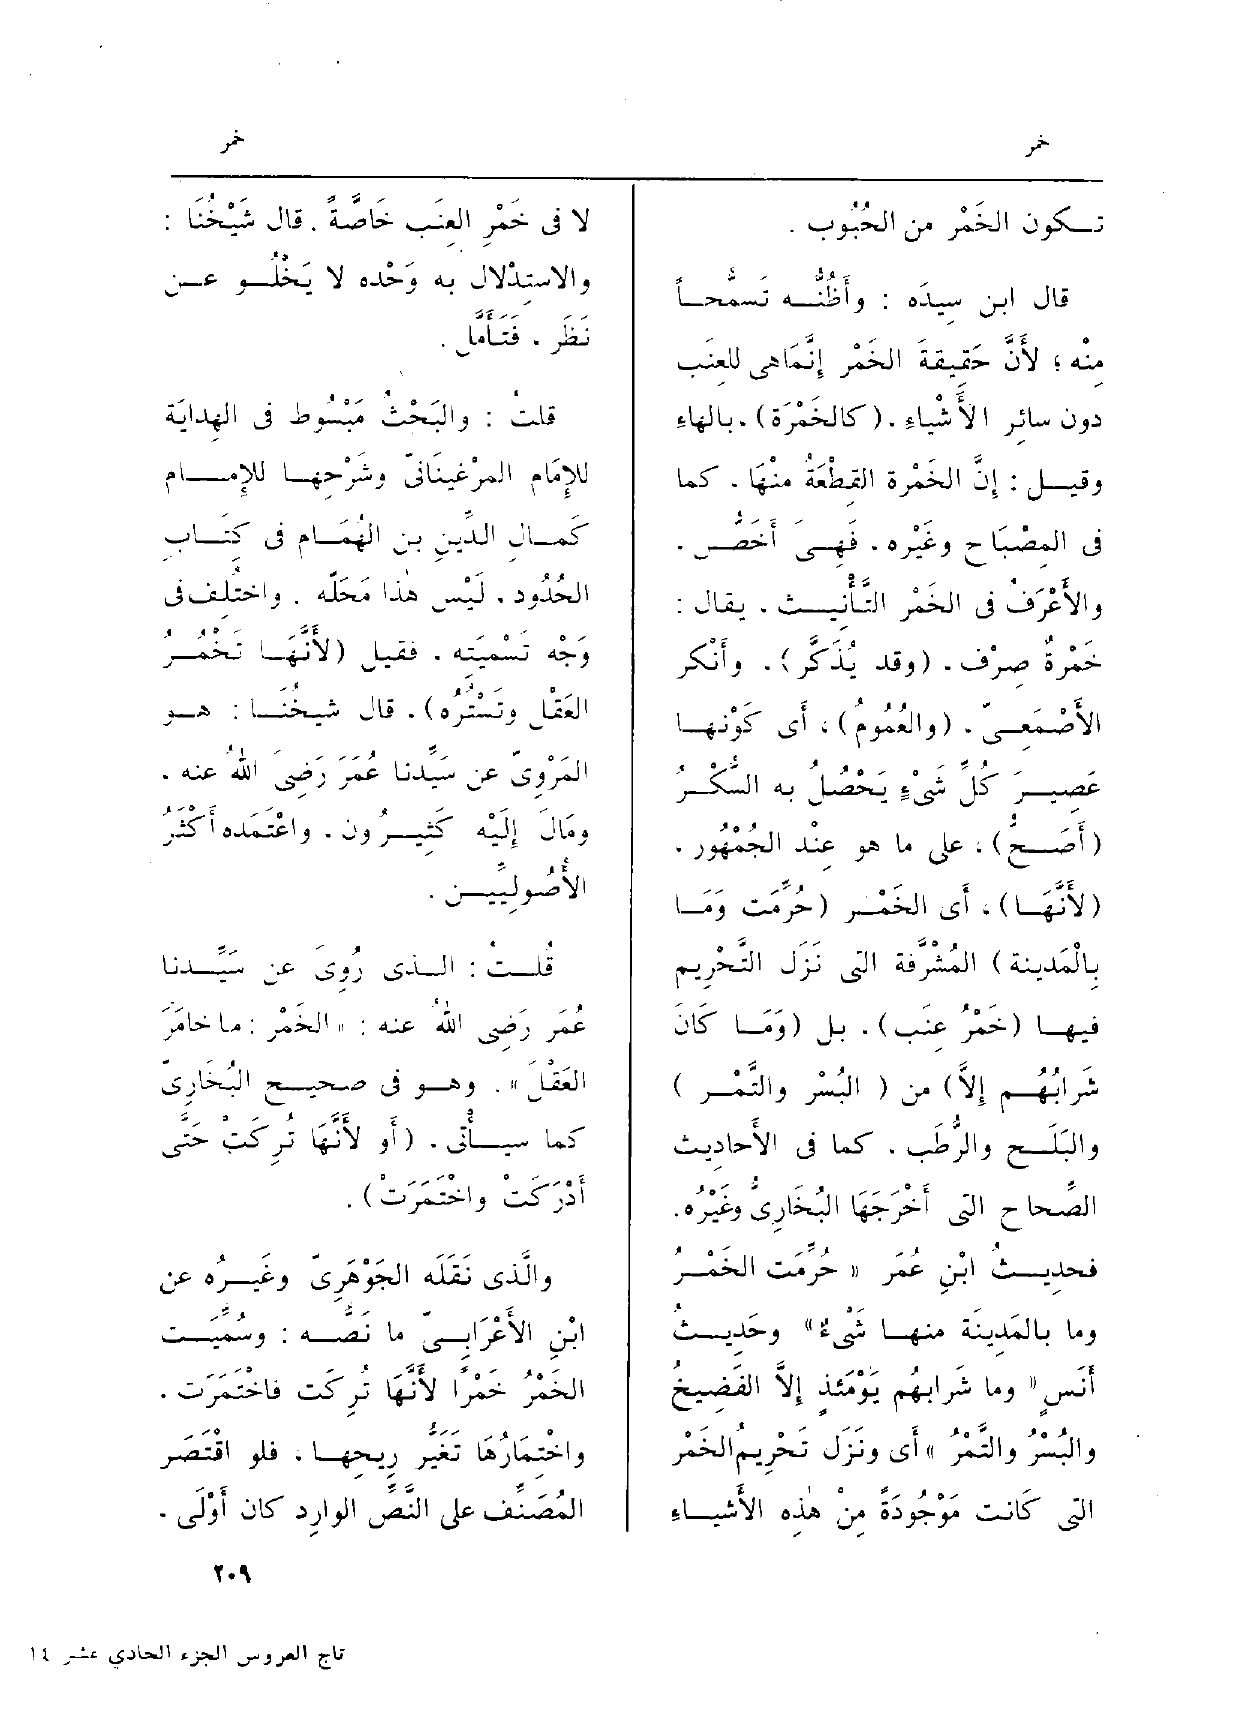 خمر
خمر
تـكون الخَمْر من الحُبُوب .
قال ابن سِيدَه : وأَظُنُّـه تَسمُّحـاً
منْه ؛ لأَنَّ حَقِيقَةَ الخَمْرِ إِنَّماهى للعِنَب
دون سائِرِ الأَشْياءِ . ( كالخَمْرَة) . بالهاءِ
وقيـل : إِنَّ الخَمْرة القِطْعَةُ منْهَا . كما
فى المِصْبَاحِ وغَيْرِه . فَهِـىَ أَخَصُّ .
والأَعْرَفُ فى الخَمْرِ التَّأْنِيـث . يقال :
خَمْرةٌ صِرْف . (وقد يُذَكَّر) . وأَنْكَر
الأَصْمَعِـىّ . (والعُمُومُ) ، أَى كَوْنُهـا
عَصِيـرَ كُلِّ شَىْءٍ يَحْصُلُ به السُّكْـرُ
(أَصَـحُّ) ، على ما هو عِنْد الجُمْهُور .
(لأَنَّهَـا) ، أَى الخَمْـر (حُرِّمَت وَمَـا
بالْمَدِينة) المُشْرَّفة التى نَزَلَ التَّحْرِيم
فِيهـا (خَمْرُ عِنَب) . بل (وَمَـا كَانَ
شَرَابُهُـم إِلاَّ) من ( البُسْرِ والتَّمْـرِ )
والبَلَـحِ والرُّطَب . كما فى الأَحادِيث
الصِّحاحِ التى أَخْرَجَهَا البُخَارِىُّ وغَيْرُه.
فحَدِيـثُ ابْنِ عُمَر « حُرِّمَت الخَمْـرُ
وما بالمَدِينَة منهـا شَىْءٌ» وحَدِيـثُ
أَنَسٍ « وما شَرابُهُم يَوْمَئِذٍ إِلاَّ الفَضِيخُ
والبُسْرُ والتَّمْرُ » أَى ونَزَلَ تَحْرِيمُ الخَمْرِ
التى كَانَت مَوْجُودَةً مِنْ هٰذِه الأَشْيـاءِ
لا فى خَمْرِ العِنَبِ خَاصَّةً . قال شَيْخُنَا :
والاستِدْلالُ به وَحْدَه لا يَخْلُـو عـن
نَظَرٍ . فَتَأَمَّلْ .
قلتُ : والبَحْثُ مَبْسُوط فى الهِدايَة
للإِمَامِ المَرْغِينَانىّ وشَرْحِهـا للإِمـامِ
كَمـال الدِّين بنِ الهُمَـامِ فى كِتَـاب
الحُدُود . لَيْس هٰذا مَحَلّه . واختُلِف فى
وَجْه تَسْمِيَتِه . فقيل (لأَنَّهَـا تَخْمُـرُ
العَقْلَ وتَسْتُرُه) . قال شيخُنَـا : هـو
المَرْوِىّ عن سَيِّدنا عُمَر رَضِىَ اللهُ عنه .
ومَالَ إِلَيْه كَثِيـرُون . واعْتَمَده أَكْثَرُ
الأُصُولِيِّيـن .
قُلـتُ : الـذى رُوِىَ عن سَيِّـدنا
عُمَر رَضِى اللهُ عنه : « الخَمْرُ : ما خامَرَ
العَقْلَ » . وهـو فى صحيـح البُخَارِىّ
كما سيـأتى . (أَو لأَنَّهَا تُرِكَتْ حَتَّى
أَدْرَكَتْ واخْتَمَرَت) .
والَّذى نَقَلَه الجَوْهَرِىّ وغَيـرُه عن
ابْنِ الأَعْرَابـىّ ما نَصُّـه : وسُمِّيَـت
الخَمْرُ خَمْرًا لأَنَّهَا تُرِكَت فاخْتَمَرَت .
واخْتِمَارُهَا تَغَيُّر رِيحِهـا . فلو اقْتَصَر
المُصَنِّف على النَّصِّ الوارِدِ كان أَوْلَى .
٢٠٩
تاج العروس الجزء الحادي عشر ١٤